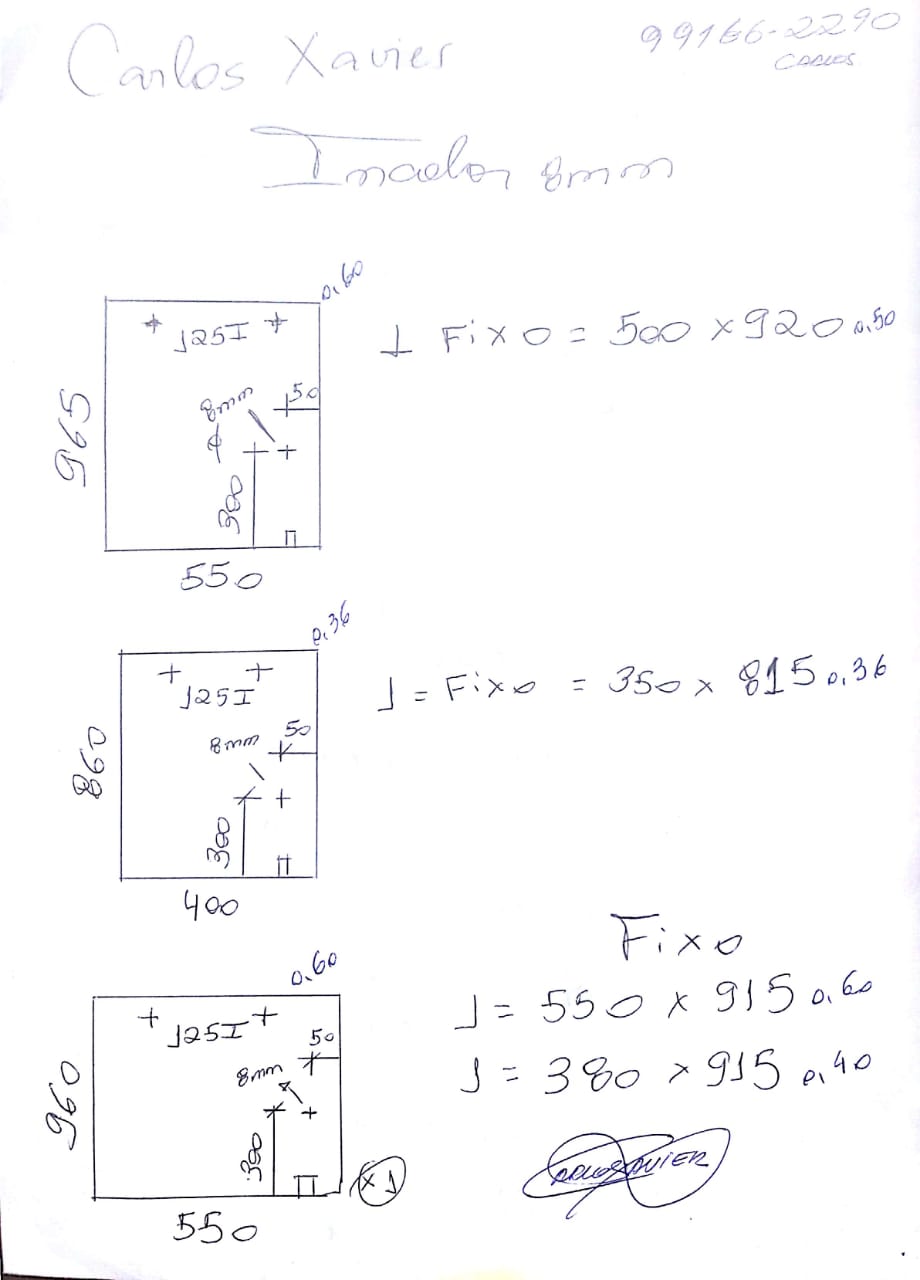 Carlos Xavier
99166-2290
CARLOS
Incolor 8mm
0,60
125I
965
8mm
50
300
550
1 Fixo = 500 x 920 0,50
0,36
125I
860
8mm
50
300
400
1 = Fixo = 350 x 815 0,36
0,60
125I
960
8mm
50
300
550
x 1
Fixo
1 = 550 x 915 0,60
1 = 380 x 915 0,40
CARLOS XAVIER